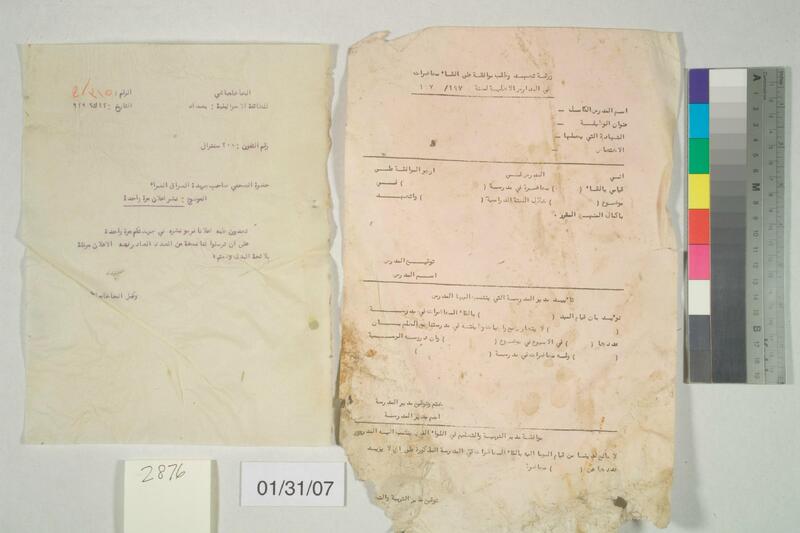 الحاخامباشي
للطائفة الاسرائيلية : بغداد
الرقم :
التاريخ :
رقم التلفون : ٢٠٠ سنترال
حضرة الصحفي صاحب جريدة العراق الغراء
الموضوع : نشر اعلان مرة واحدة
تجدون طيه اعلانا نرجو نشره في جريدتكم مرة واحدة
على ان ترسلوا لنا نسخة من العدد الصادر فيه الاعلان مرفقة
بقائمة البدل ودمتم ؛
وكيل الحاخامباشي
ورقة تعهد وطلب موافقة على القاء محاضرات
في المدارس الاهلية لسنة
اسم المدرس الكامل –
عنوان الوظيفة –
الشهادة التي يحملها –
الاختصاص –
اني المدرس في ارجو الموافقة على
قيامي بالقاء ( ) محاضرة في مدرسة ( ) في
موضوع ( ) خلال السنة الدراسية ( ) واتعهد
باكمال المنهج المقرر .
توقيع المدرس
اسم المدرس
تأييد مدير المدرسة التي ينتسب اليها المدرس
نؤيد بان قيام السيد ( ) بالقاء المحاضرات في مدرسة
عددها ( ) في الاسبوع في موضوع ( ) وان دروسه الرسمية
( ) وله محاضرات في مدرسة ( )
ختم وتوقيع مدير المدرسة
اسم مدير المدرسة
موافقة مدير التربية والتعليم في اللواء الذي ينتسب اليه المدرس
لا مانع لدينا من قيام السيد اليه بالقاء المحاضرات في المدرسة المذكورة على ان لا يزيد
عددها عن ( ) محاضرة
توقيع مدير التربية والت
2876
01/31/07